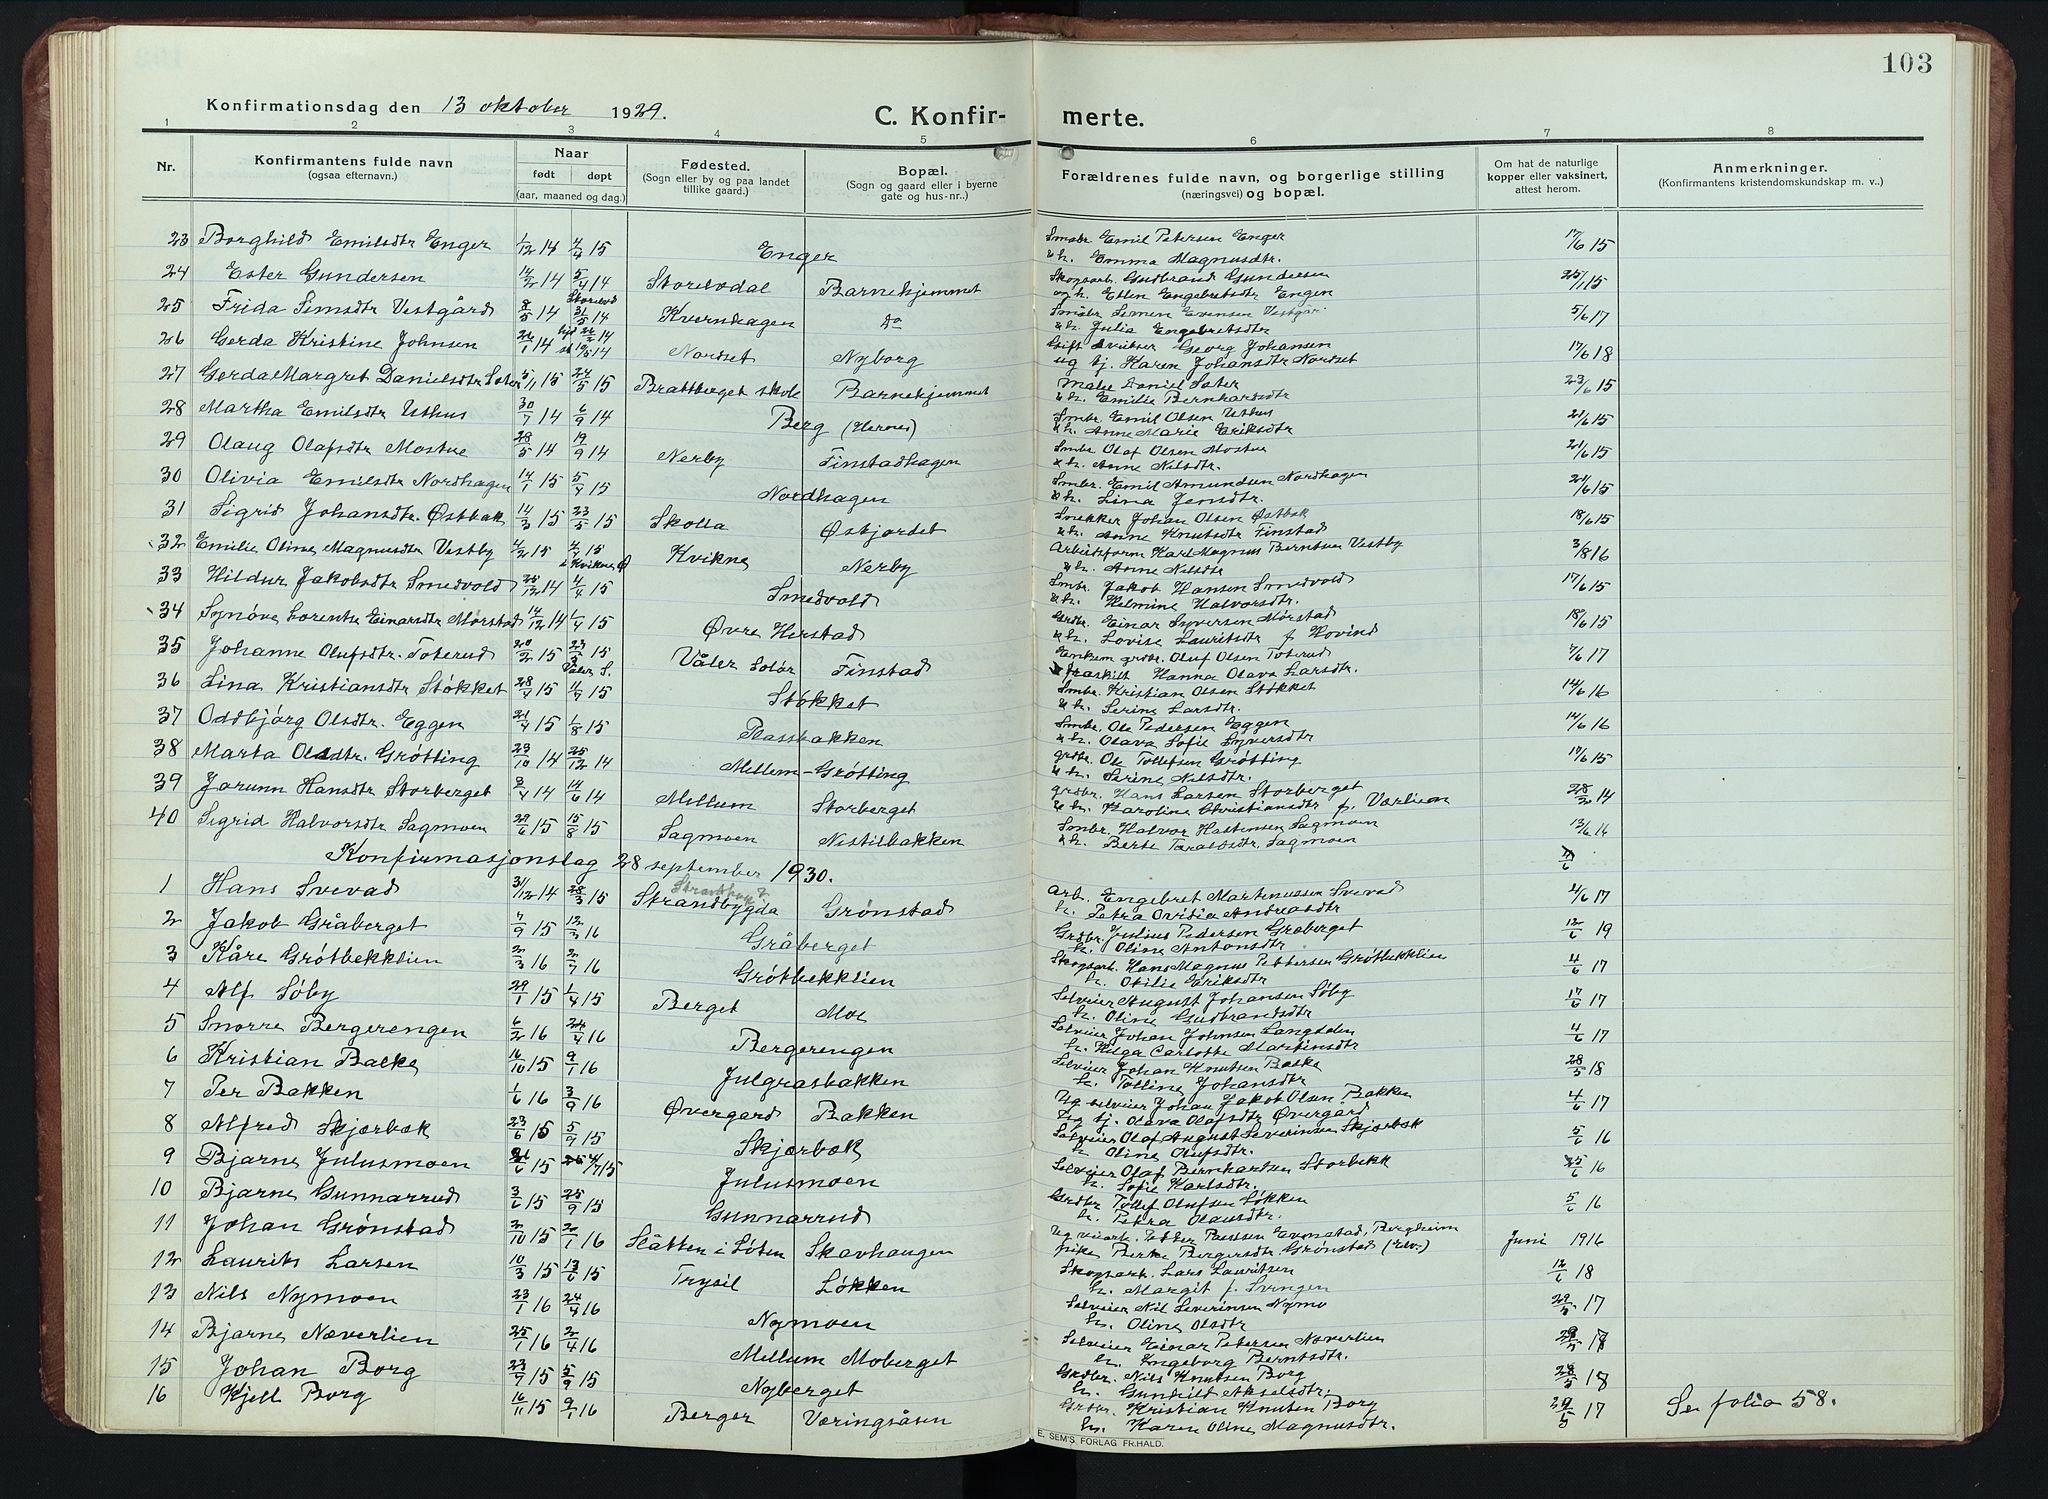 103
Konfirmationsdag den 13 oktober 1929.
C. Konfir- merte.
1 2 3 4 5 6 7 8
Nr.
Konfirmantens fulde navn
(ogsaa efternavn.)
Naar
født døpt
(aar, maaned og dag.)
Fødested.
(Sogn eller by og paa landet
tillike gaard.)
Bopæl.
(Sogn og gaard eller i byerne
gate og hus-nr..)
Forældrenes fulde navn, og borgerlige stilling
(næringsvei) og bopæl.
Om hat de naturlige
kopper eller vaksinert,
attest herom.
Anmerkninger.
(Konfirmantens kristendomskundskap m. v..)
23 Borghild Emilsdtr Enger 1/12 14 4/4 15 Enger Smbr Emil Petersen Enger 17/6 15
& h. Emma Magnusdtr.
24 Ester Gundersen 14/2 14 5/4 14 Storelvdal Barnehjemmet Skogsarb. Gudbrand Gundersen 25/1 15
og h. Ellen Engebretsdtr Engen
25 Frida Simsdtr Vestgård 8/5 14 Storelvd 31/5 14 Kverndagen Do Småbr Simen Evensen Vestgår 5/6 17
& h. Julia Engebretsdtr
26 Gerda Kristine Johnsen 26/1 14 Nordset Nyborg Gift Georg Johansen 17/6 18
ug tj. Karen Johansdtr Nordset
27 Gerda Margret Danielsdtr Sæter 5/11 15 24/5 15 Brattberget skole Barnehjemmet Maler Daniel Sæter 23/6 15
& h. Emilie Bernhardsdtr
28 Martha Emilsdtr Usthus 30/7 14 6/9 14 Berg (Hernes) Smbr. Emil Olsen Usthus 21/6 15
& h. Anne Marie Eriksdtr
29 Olaug Olafsdtr Mostue 28/5 14 19/9 14 Nerby Finstadhagen Smbr Olaf Olsen Mostue 21/6 15
& h. Anne Nilsdtr.
30 Olivia Emilsdtr Nordhagen 14/1 15 5/4 15 Nordhagen Smbr. Emil Amundsen Nordhagen 21/6 15
& h. Lina Jensdtr.
31 Sigrid Johansdtr. Østbak 14/3 15 23/5 15 Skolla Østjordet Snekker Johan Olsen Østbak 18/6 15
& h. Anne Knutsdtr Finstad
32 Emilie Oline Magnusdtr Vestby 4/2 15 4/4 15 Kvikne Nerby Arbeidsform Karl Magnus Berntsen Vestby 3/8 16
i Kvikne
& h. Anne Nilsdtr
33 Hildur Jakobsdtr Smedvold 25/12 14 4/4 15 Smedvold Smbr. Jakob Hansen Smedvold 17/6 15
& h. Helmine Halvorsdtr.
34 Synøve Lorentse Einarsdtr Mørstad 14/12 14 1/4 15 Øvre Herstad Grdbr. Einar Syversen Mørstad 18/6 15
& h. Lovise Lauritsdtr f. Hovind
35 Johanne Olufsdtr. Toterud 20/2 15 23/5 15 Våler Solør Finstad Enkem grdbr. Oluf Olsen Toterud 7/6 17
Våler S.
fraskilt Hanna Olava Larsdtr.
36 Lina Kristiansdtr Støkket 28/4 15 4/7 15 Støkket Smbr. Kristian Olsen Støkket 14/6 16
& h. Serine Larsdtr.
37 Oddbjørg Olsdtr. Eggen 21/4 15 1/8 15 Plassbakken Smbr. Ole Pedersen Eggen 14/6 16
& h. Olava Sofie Syversdtr
38 Marta Olsdtr. Grøtting 29/10 14 25/12 14 Mellem-Grøtting grdbr. Ole Tollefsen Grøtting 17/6 15
& h. Serine Nilsdtr.
39 Jorunn Hansdtr Storberget 8/4 14 14/6 14 Mellum Storberget grdbr. Hans Larsen Storberget 28/2 14
& h. Karoline Christiansdtr f. Værlien
40 Sigrid Halvorsdtr Sagmoen 29/6 15 15/8 15 Sagmoen Nistilbakken Smbr. Halvor Hastensen Sagmoen 13/6 14
& h. Berte Taraldsdtr. Sagmoen
Konfirmasjonsdag 28 september 1930.
1 Hans Svevad 31/12 14 28/3 15 Strandbygda Grønstad Arb. Engebret Martinussen Svevad 4/6 17
h. Petra Ovidia Andreasdtr
2 Jakob Gråberget 7/9 15 12/3 16 Gråberget Grdbr. Julius Pedersen Gråberget 12/6 19
h. Oline Antonsdtr
3 Kåre Grøtbekklien 2/3 16 2/7 16 Grøtbekklien Skogsarb. Hans Magnus Pettersen Grøtbekklien 4/6 17
h. Otilie Eriksdtr
4 Alf Søby 29/1 15 1/4 15 Berget Moe Selveier August Johansen Søby 17/6 17
h. Oline Gudbrandsdtr
5 Snorre Bergerengen 6/2 16 24/4 16 Bergerengen Selveier Johan Johnsen Langdalen 4/6 17
h. Helga Carlotte Martinsdtr
6 Kristian Balke 16/10 15 9/1 16 Julgrasbakken Selveier Johan Knutsen Balke 28/5 18
h. Tolline Johansdtr
7 Per Bakken 1/6 16 3/9 16 Øvergard Bakken Ug selveier Johan Jakob Olsen Bakken 4/6 17
Ug tj. Olava Olafsdtr Øvergård
8 Alfred Skjærbæk 23/6 15 5/9 15 Skjærbæk Selveier Olaf August Severinsen Skjærbæk 5/6 16
h. Oline Olufsdtr.
9 Bjarne Julusmoen 26/6 15 4/7 15 Julusmoen Selveier Olaf Bernhartsen Storbekk 25/6 16
h. Sofie Karlsdtr.
10 Bjarne Gunnarrud 3/6 15 25/9 15 Gunnarrud Grdbr Tollef Olufsen Løkken 5/6 16
h. Petra Olausdtr.
11 Johan Grønstad 2/10 15 2/1 16 Slåtten i Løten Skavhaugen Ug Petter Paulsen Evenstad, Bergheim Juni 1916
pike Berte Bergersdtr. Grønstad (Elv.)
12 Laurits Larsen 10/3 15 13/6 15 Trysil Løkken Skogsark. Lars Lauritsen 12/6 18
h. Margit f. Svingen
13 Nils Nymoen 23/1 16 24/4 16 Nymoen Selveier Nil Severinsen Nymo 29/5 17
h. Oline Olsdtr
14 Bjarne Næverlien 25/1 16 2/4 16 Mellum Moberget Selveier Einar Petersen Næverlien
h. Ingeborg Berntsdtr.
15 Johan Borg 23/7 15 5/9 15 Nyberget Grdbr. Nils Knutsen Borg 28/5 18
h. Gunhild Akselsdtr.
16 Kjell Borg 16/11 15 9/1 16 Berger Væringsåsen Grdbr. Kristian Knutsen Borg 17 Se folio 58.
h. Karen Oline Magnusdtr.
E. SEM'S FORLAG FR.HALD.